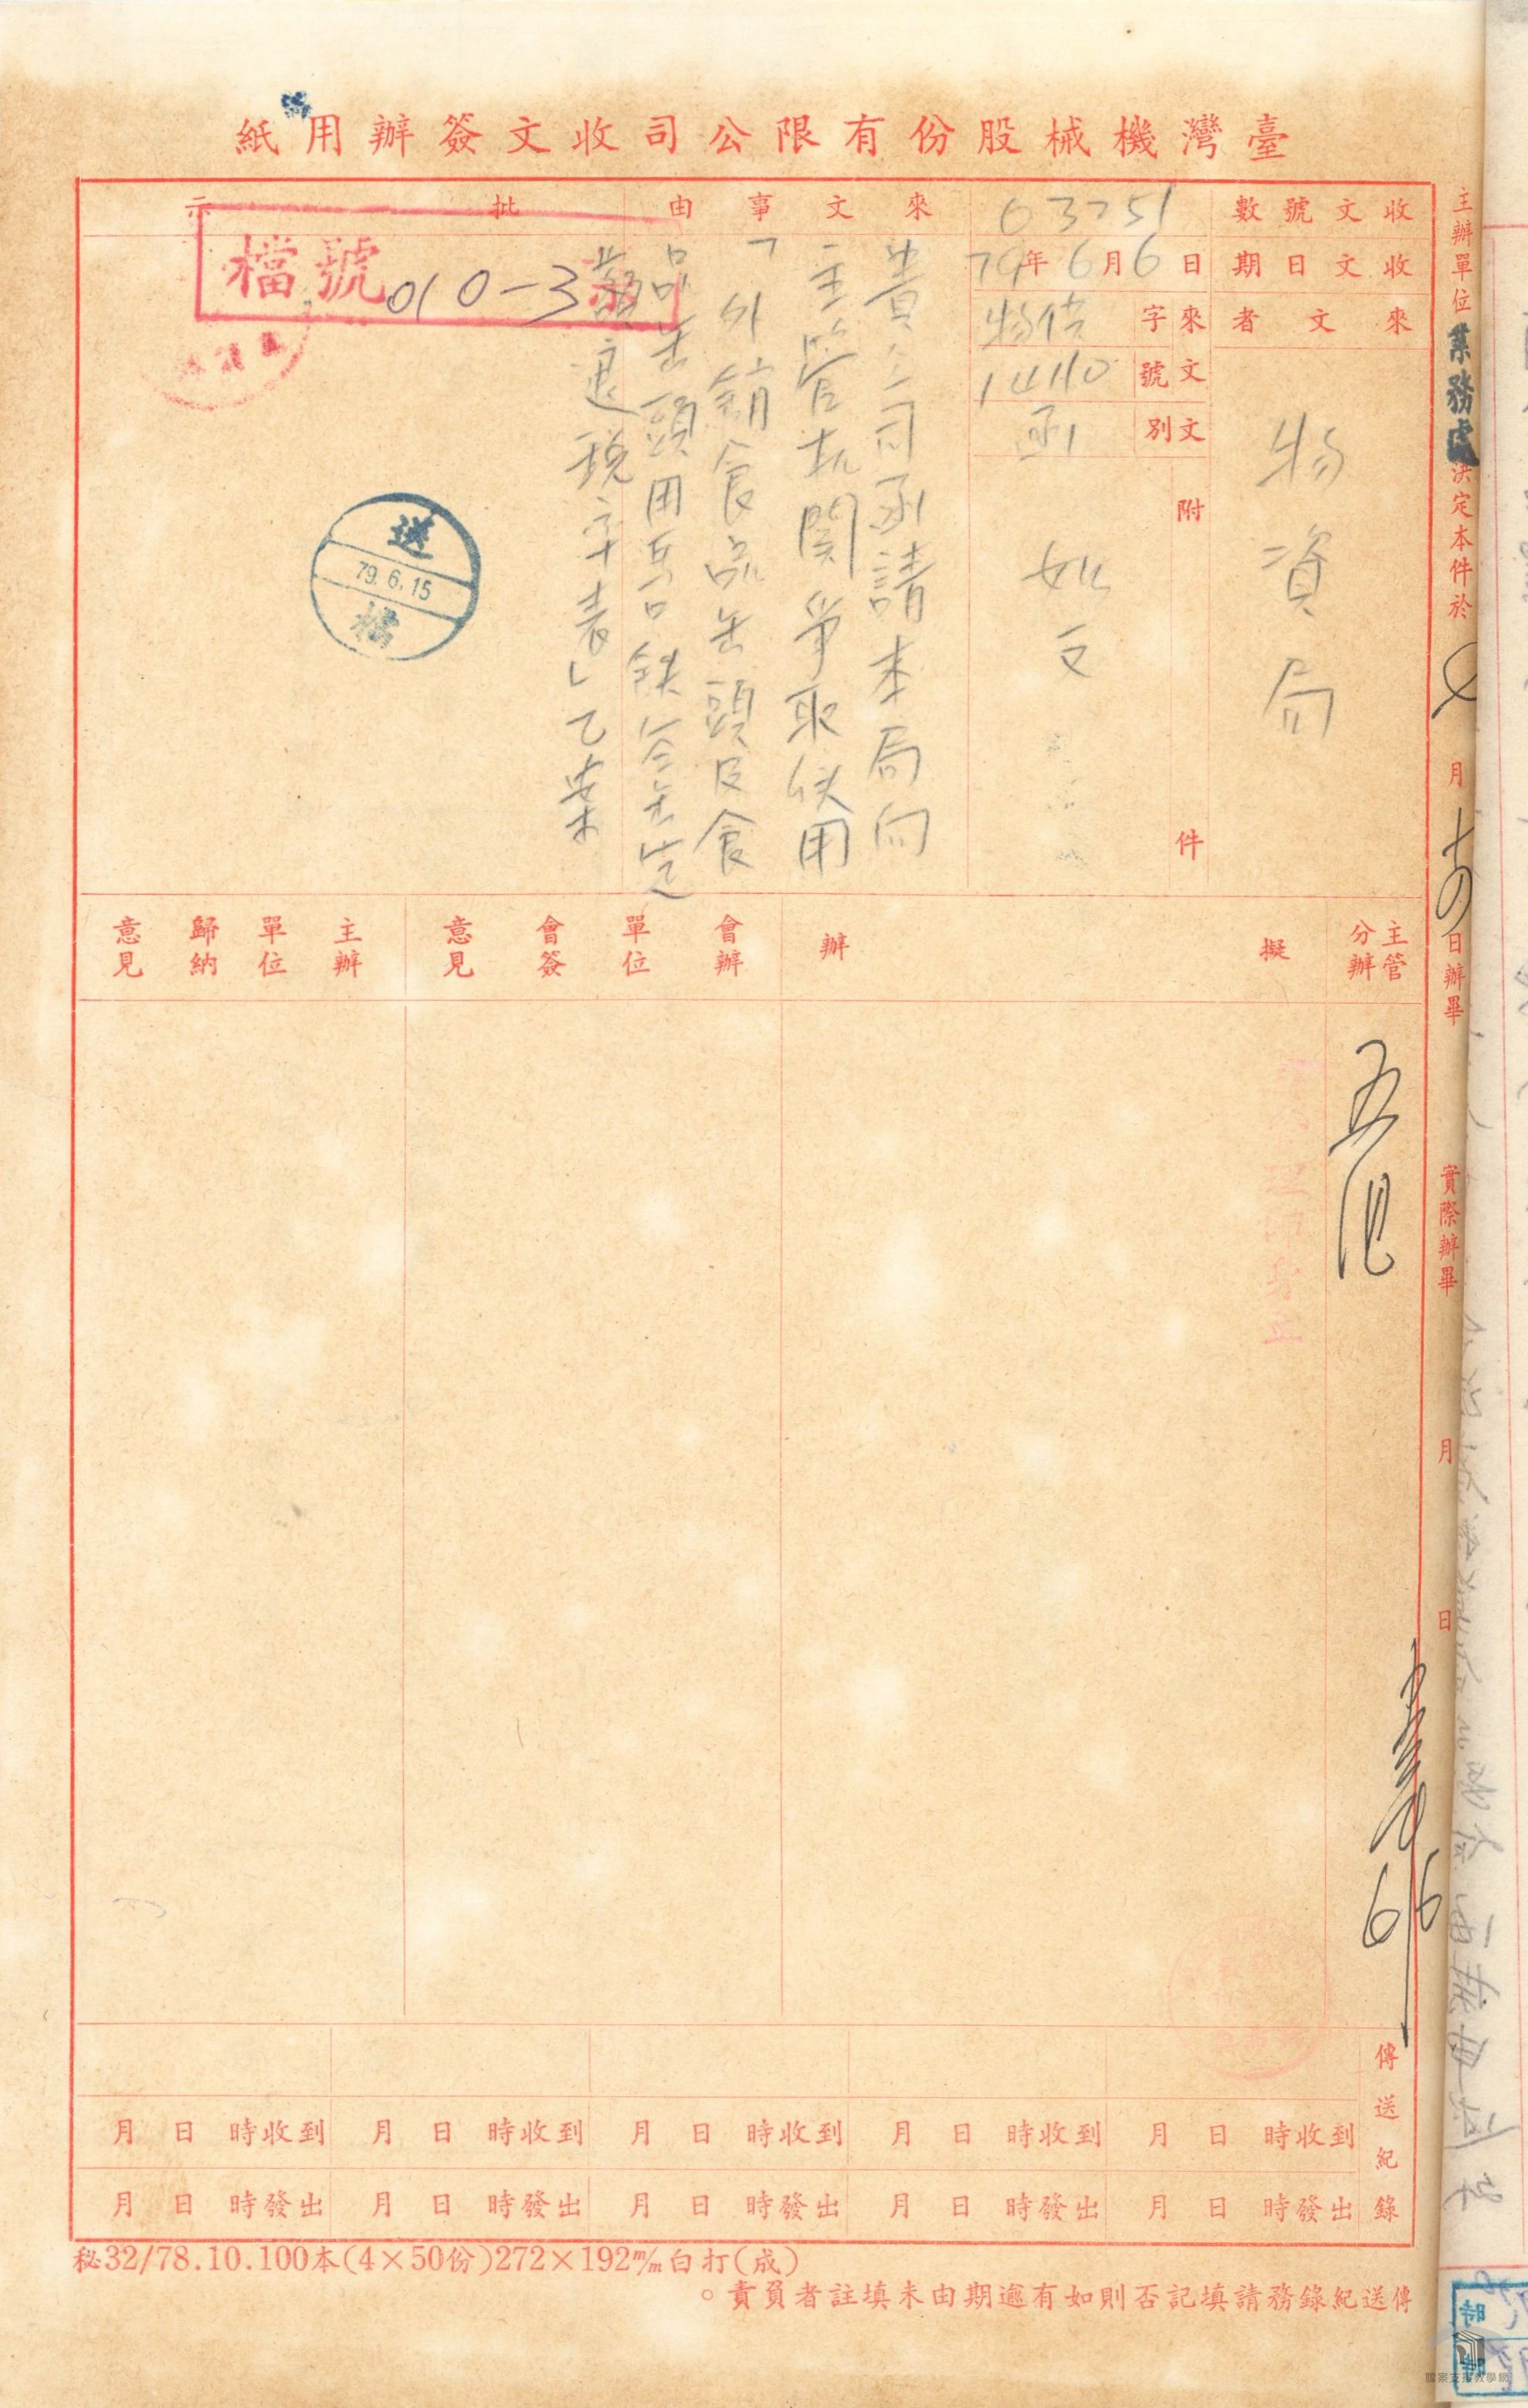 臺灣機械股份有限公司收文簽辦用紙
主辦單位業務處決定本件於
月
日辦畢
實際辦畢
月
日
收文號數
03751
收文日期
79年6月6日
來文者
物資局
來文字號
物供
14110
文別
函
附件
如文
來文事由
貴公司函請本局向
主管機関爭取使用
「外銷食品缶頭及食
品缶頭用馬口鉄空缶定
額退税率表」乙案
批示
檔號
010-3
送
79.6.15
檔
主管分辦
擬辦
會辦單位會簽意見
主辦單位歸納意見
6/6
傳送紀錄
月 日 時收到 月 日 時收到 月 日 時收到 月 日 時收到 月 日 時收到
月 日 時發出 月 日 時發出 月 日 時發出 月 日 時發出 月 日 時發出
秘32/78.10.100本(4×50份)272×192㎜白打(成)
傳送紀錄務請填記否則如有逾期由未填註者負責。
時
檔案支援教學網